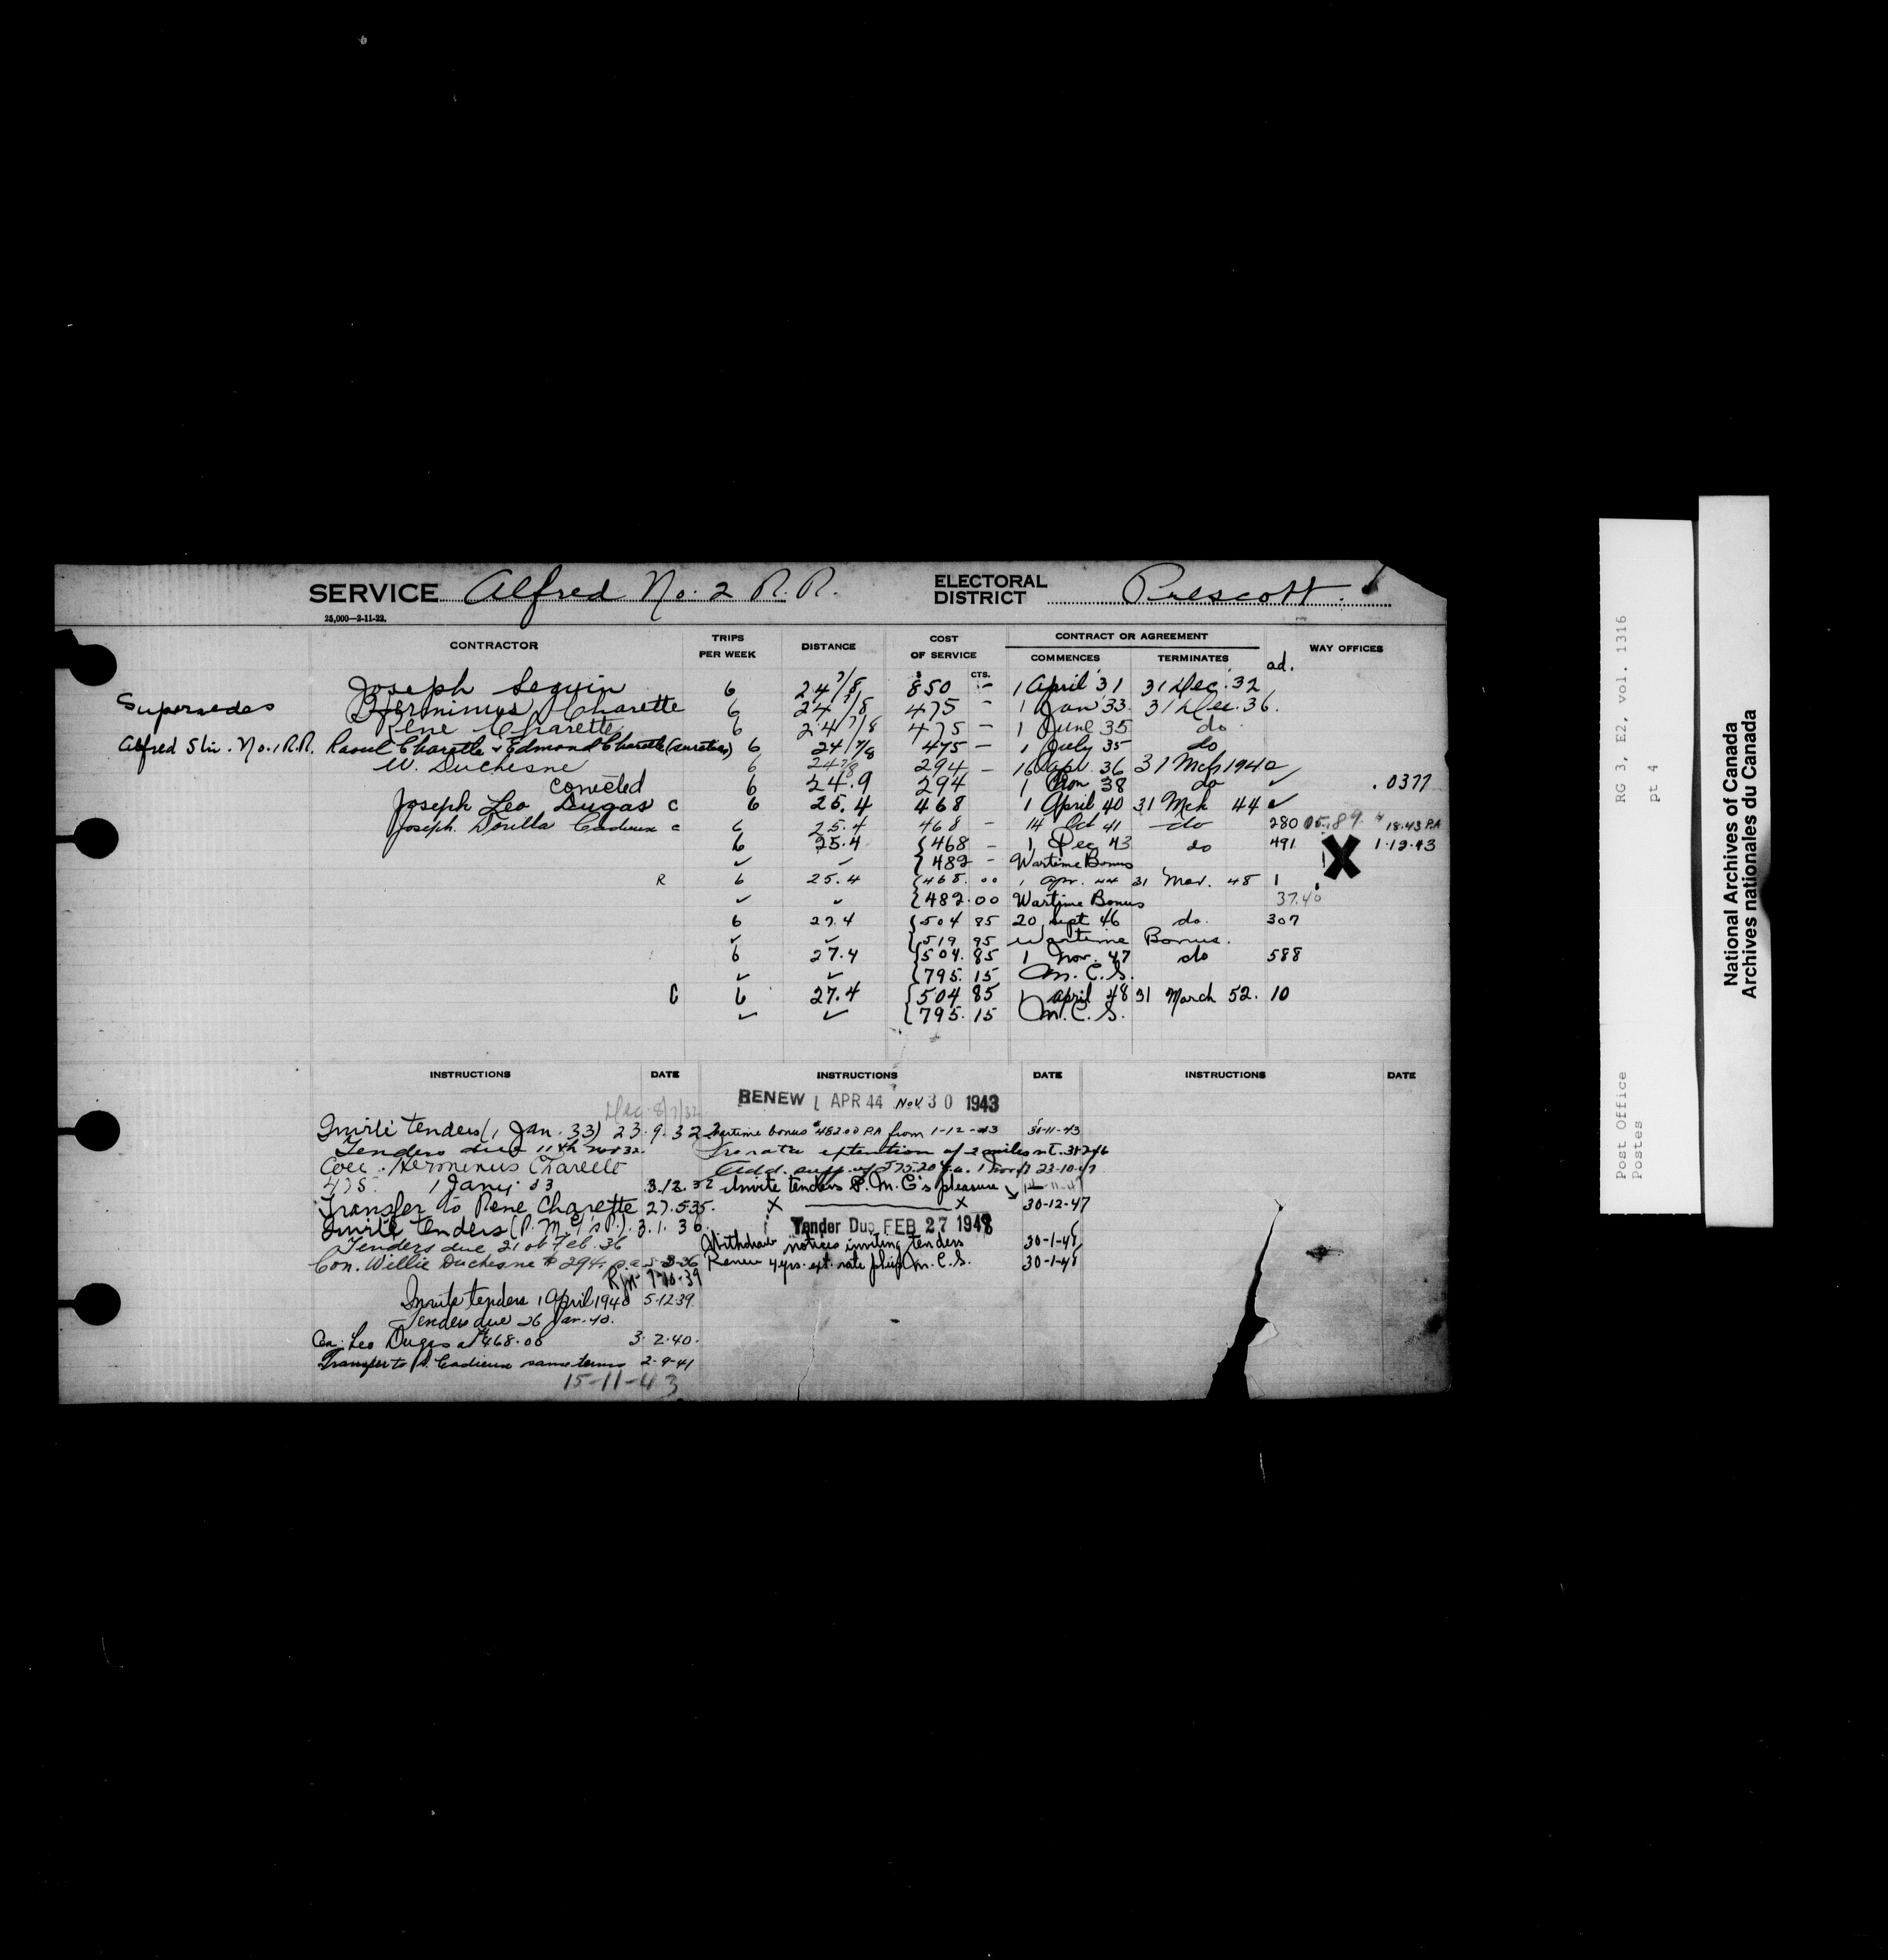 SERVICE Alfred No. 2 R.R. ELECTORAL DISTRICT Prescott.
25,000—2-11-22.
CONTRACTOR TRIPS PER WEEK DISTANCE COST OF SERVICE CONTRACT OR AGREEMENT WAY OFFICES
COMMENCES TERMINATES ad.
$ CTS.
Joseph Seguin 6 24 7/8 850 - 1 April 31 31 Dec. 32
Supersedes Herminius Charette 6 24 7/8 475 - 1 Jan 33 31 Dec. 36.
Rene Charette 6 24 7/8 475 - 1 June 35 do
Alfred Stn. No. 1 R.R. Raoul Charette & Edmond Charette (sureties) 6 24 7/8 475 - 1 July 35 do
W. Duchesne 6 24 7/8 294 - 16 Apl. 36 31 Mch 1940
6 24.9 294 1 38 do ✓ .0377
Joseph Leo Dugas C 6 25.4 468 1 April 40 31 Mch 44 ✓
Joseph Dorilla Cadieux c 6 25.4 468 - 14 Oct 41 do 280 18.43 P.A
6 25.4 {468 - 1 Dec 43 do 491 X 1.12.43
✓ ✓ {482 - Wartime Bonus
R 6 25.4 {468.00 1 Apr. 44 31 Mar. 48 1
✓ ✓ {482.00 Wartime Bonus 37.40
6 27.4 {504 85 20 Sept 46 do. 307
✓ ✓ {519 95 Wartime Bonus.
6 27.4 {504.85 1 Nov. 47 do 588
✓ ✓ {795.15 M.C.S.
C 6 27.4 {504 85 1 April 48 31 March 52. 10
✓ ✓ {795.15 M.C.S.
INSTRUCTIONS DATE INSTRUCTIONS DATE INSTRUCTIONS DATE
RENEW 1 APR 44 NOV 30 1943
Invite tenders (1 Jan. 33) 23.9.32
Tenders due 11th Nov 32.
Herminius Charette
475. 1 Jany. 33 3.12.32
Transfer to Rene Charette 27.5.35.
Invite tenders (P.M.G's P.) 3.1.36.
Tenders due 21 of Feb. 36
Con. Willie Duchesne $294 p.a.
9-10-39
Invite tenders 1 April 1940 5-12-39.
Tenders due 26 Jan. 40.
Con. Leo Dugas at $468.00 3.2.40.
Transfer to D. Cadieux same terms 2-9-41
15-11-43
Wartime bonus $482.00 P.A from 1-12-43 30-11-43
Pro rata extention of 2 miles
Add. supp. of 275.20 p.a. 1 Nov 47 23-10-47
Invite tenders P.M.G's pleasure
X X 30-12-47
Tender Due FEB 27 1948
Withdraw notices inviting tenders 30-1-48
Renew 4 yrs. ext. rate plus M.C.S. 30-1-48
Post Office RG 3, E2, vol. 1316
Postes pt 4
National Archives of Canada
Archives nationales du Canada